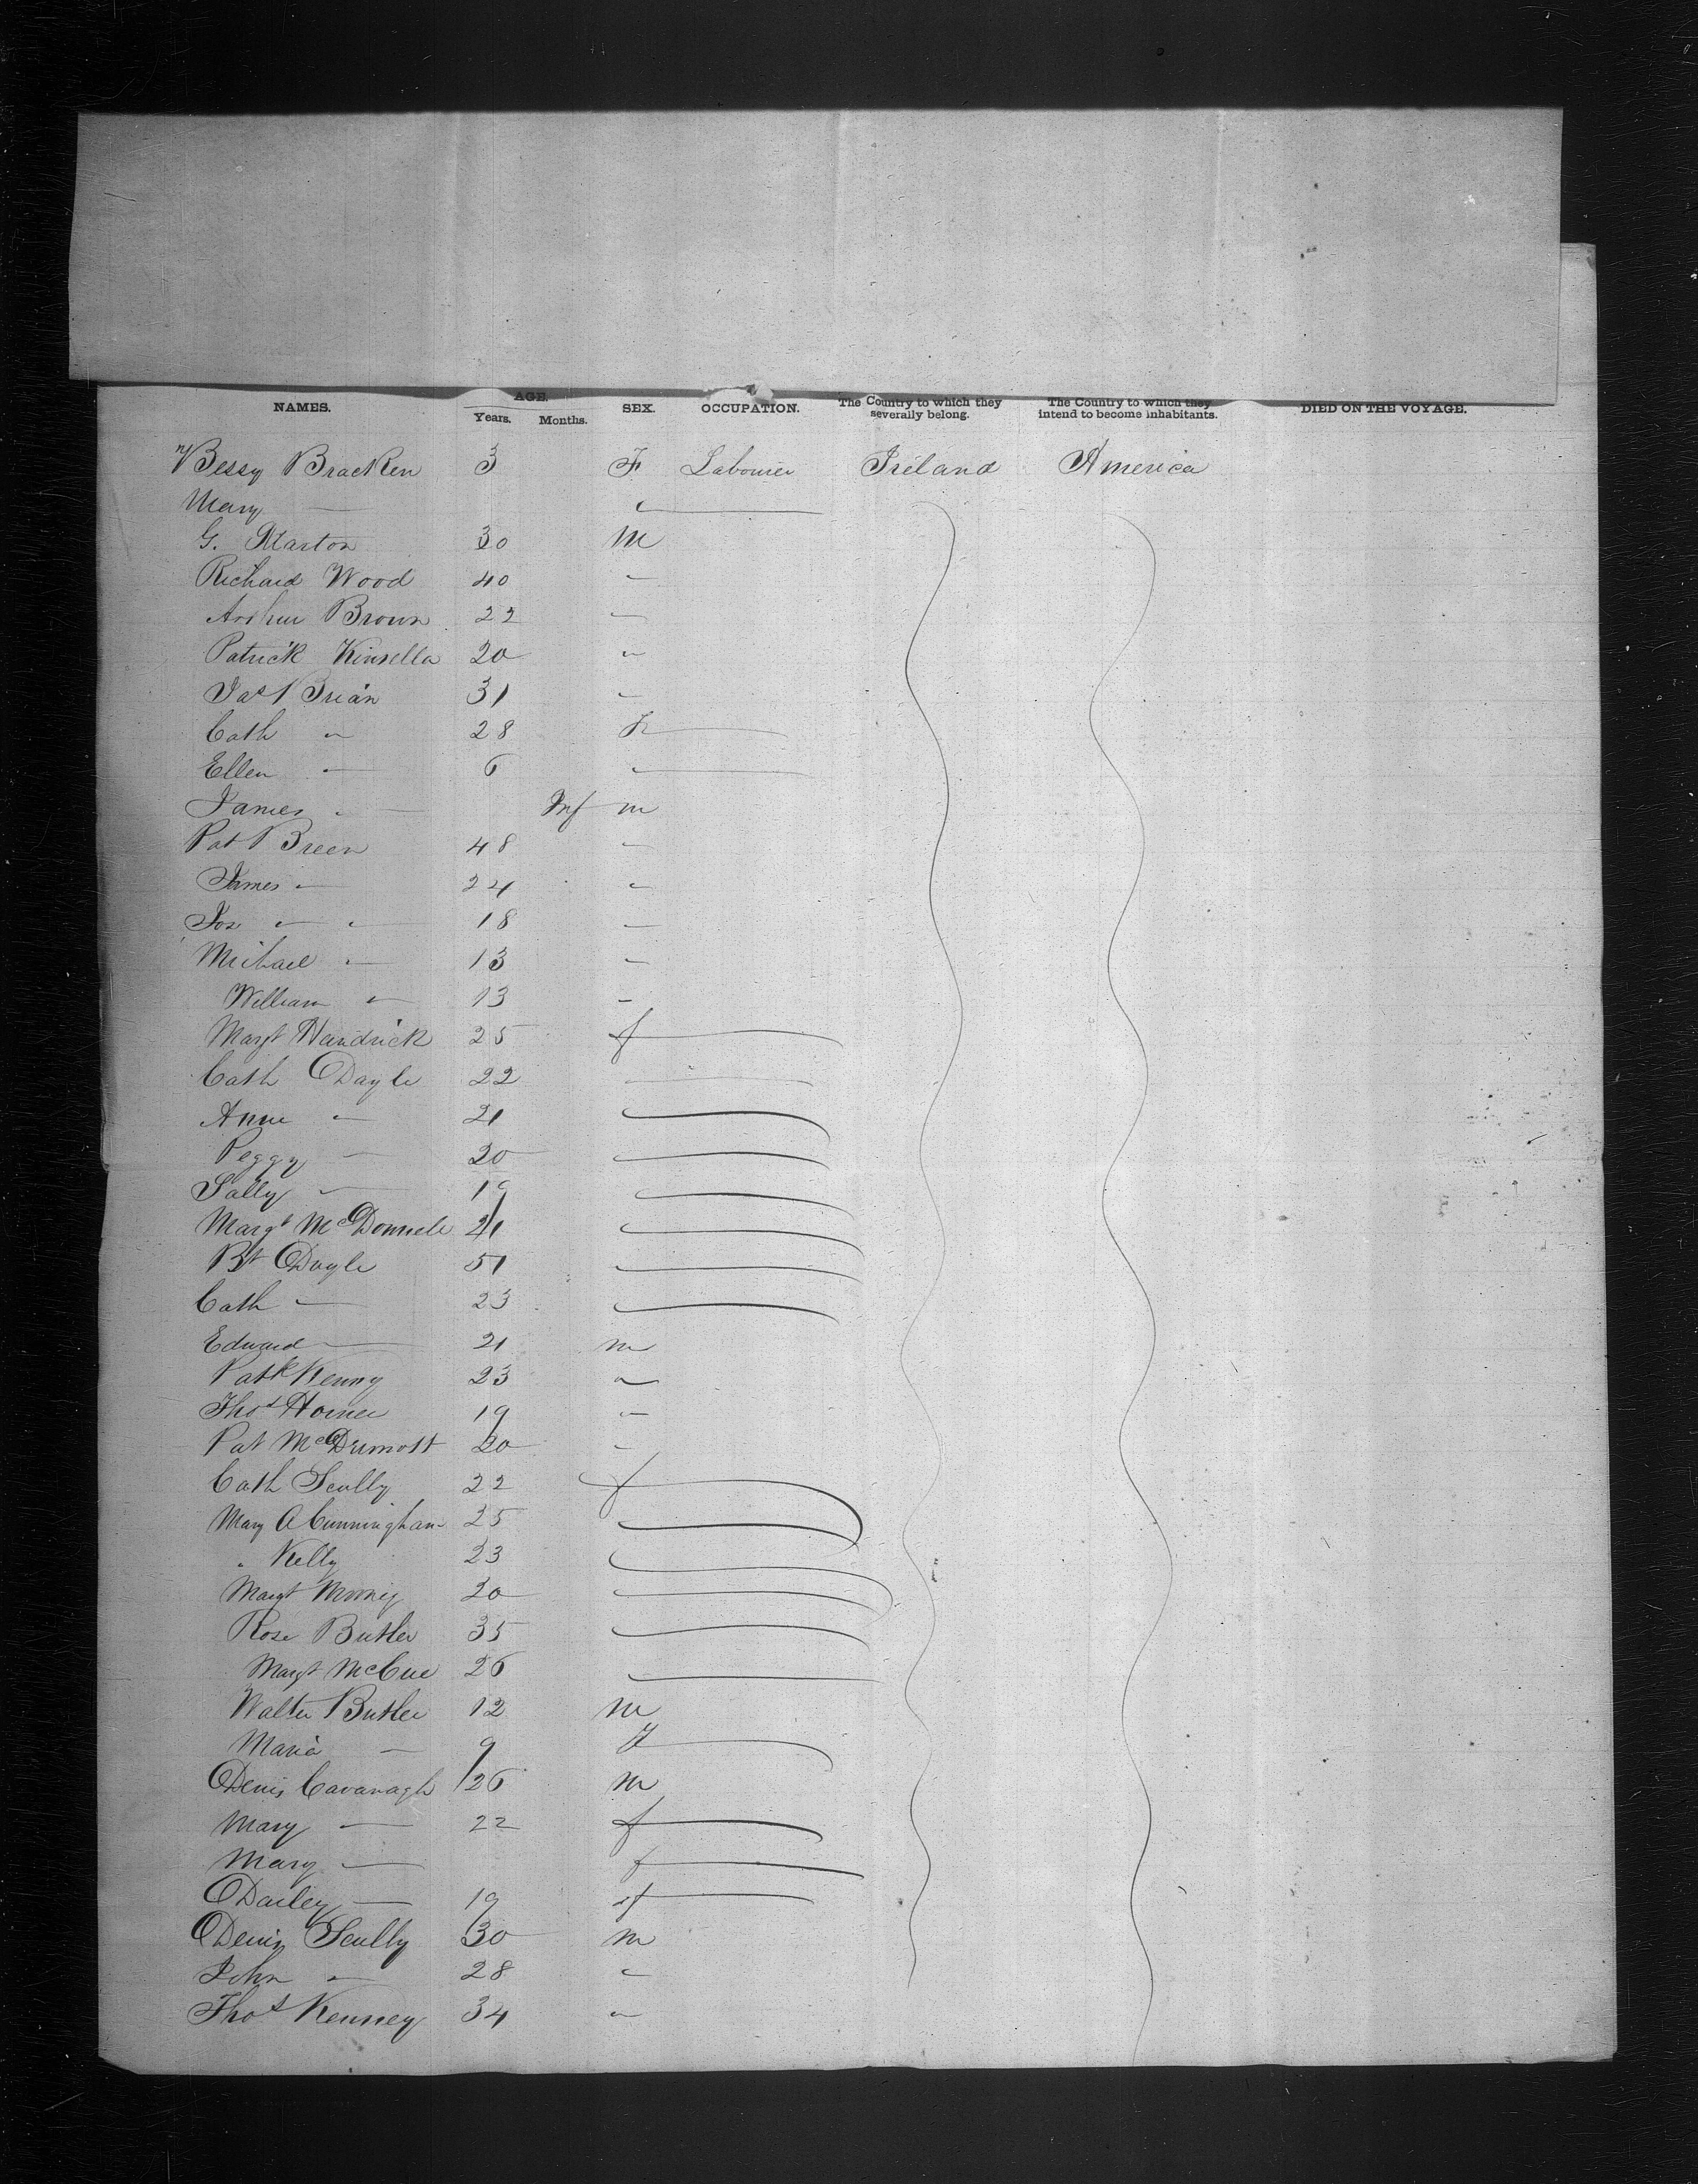 NAMES. AGE. Years. Months. SEX. OCCUPATION. The Country to which they severally belong. The Country to which they intend to become inhabitants. DIED ON THE VOYAGE.
Bessy Bracken 3 F Labourer Ireland America
Mary —
G. 30 M
Richard Wood 40 "
Arthur Brown 22 "
Patrick Kinsella 20 "
Jas Brian 31 "
Cath " 28 F
Ellen " 6
James " Inf m
Pat Breen 48 "
James " 24 "
Jos " " 18 "
Michael " 13 "
William " 13 "
Margt Handrick 25 f
Cath Doyle 22
Anne " 21
Peggy — 20
Sally " 19
Margt McDonnell 21
Bt Doyle 51
Cath " 23
Edward — 21 m
Patk Kenny 23 "
Thos Horner 19 "
Pat McDermott 20 "
Cath Scully 22 f
Mary A Cunningham 25
" Kelly 23
Margt 20
Rose Butler 35
Margt McCue 26
Walter Butler 12 m
Maria — 9 f
Denis Cavanagh 26 m
Mary — 22 f
Mary — f
Dailey — 19 f
Denis Scully 30 m
John " 28 "
Thos Kenney 34 "